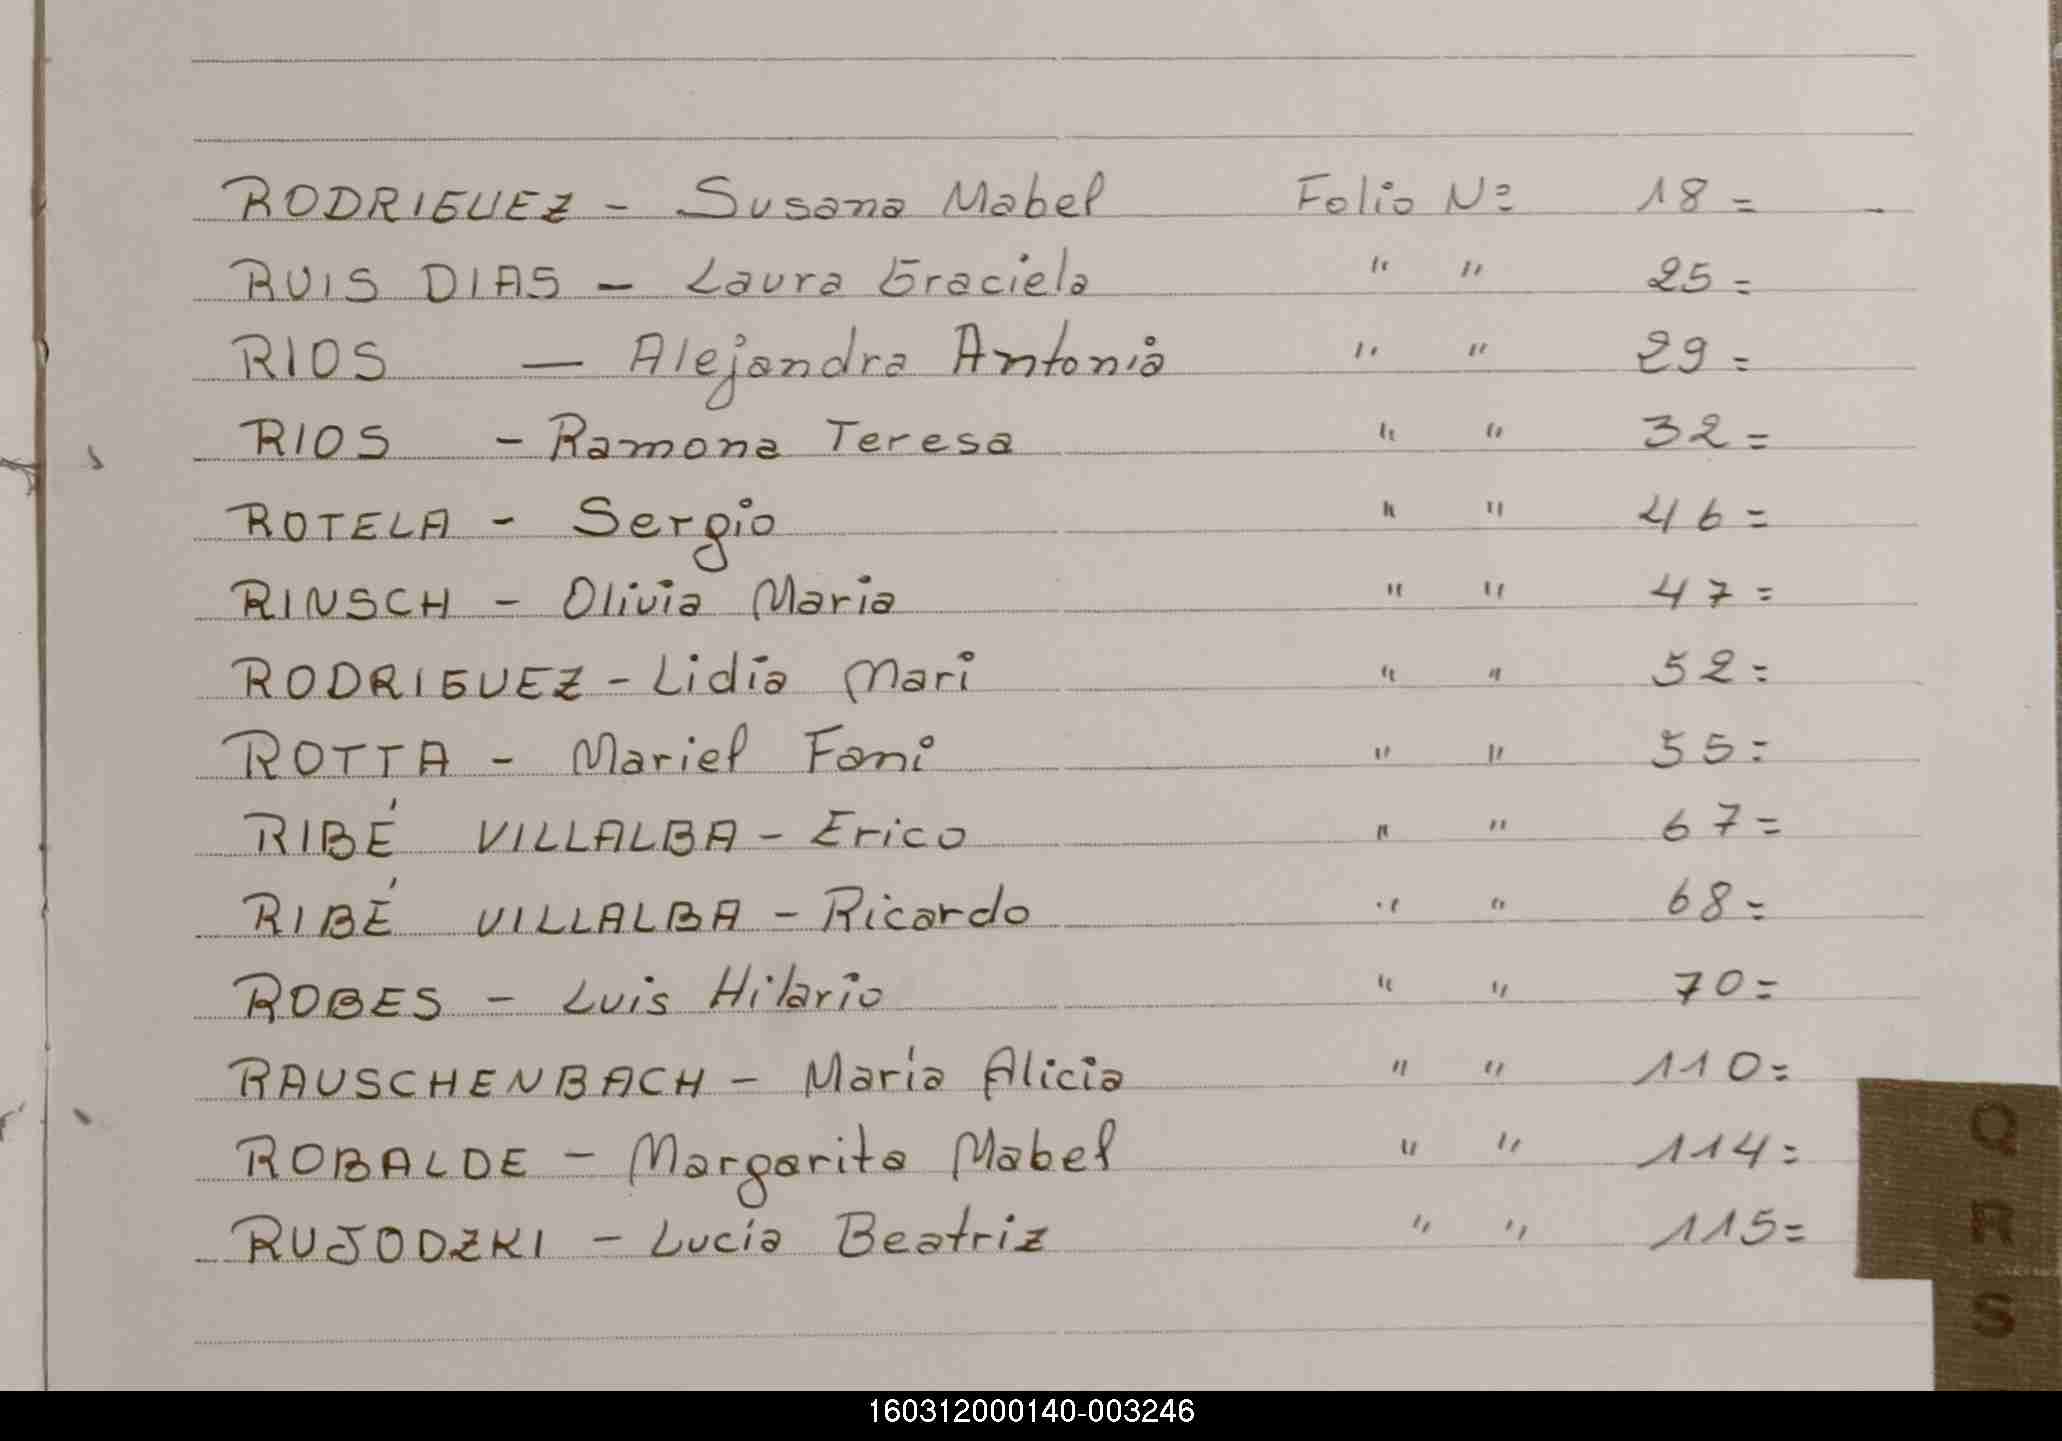 RODRIGUEZ - Susana Mabel Folio Nº 18=
RUIS DIAS - Laura Graciela " " 25=
RIOS - Alejandra Antonia " " 29=
RIOS - Ramona Teresa " " 32=
ROTELA - Sergio " " 46=
RINSCH - Olivia Maria " " 47=
RODRIGUEZ - Lidia Mari " " 52=
ROTTA - Mariel Fani " " 55=
RIBÉ VILLALBA - Erico " " 67=
RIBÉ VILLALBA - Ricardo " " 68=
ROBES - Luis Hilario " " 70=
RAUSCHENBACH - María Alicia " " 110=
ROBALDE - Margarita Mabel " " 114=
RUJODZKI - Lucia Beatriz " " 115=
Q
R
S
160312000140-003246